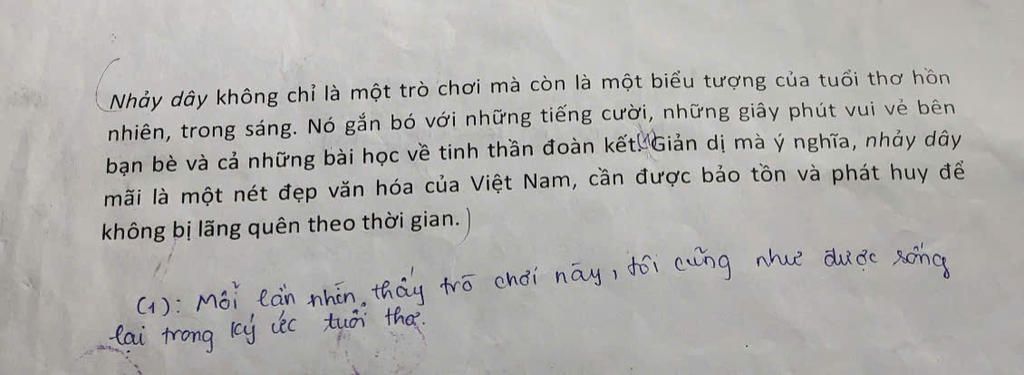 Nhảy dây không chỉ là một trò chơi mà còn là một biểu tượng của tuổi thơ hồn
nhiên, trong sáng. Nó gắn bó với những tiếng cười, những giây phút vui vẻ bên
bạn bè và cả những bài học về tinh thần đoàn kết.(1) Giản dị mà ý nghĩa, nhảy dây
mãi là một nét đẹp văn hóa của Việt Nam, cần được bảo tồn và phát huy để
không bị lãng quên theo thời gian.
(1): Mỗi lần nhìn thấy trò chơi này, tôi cũng như được sống
lại trong ký ức tuổi thơ.